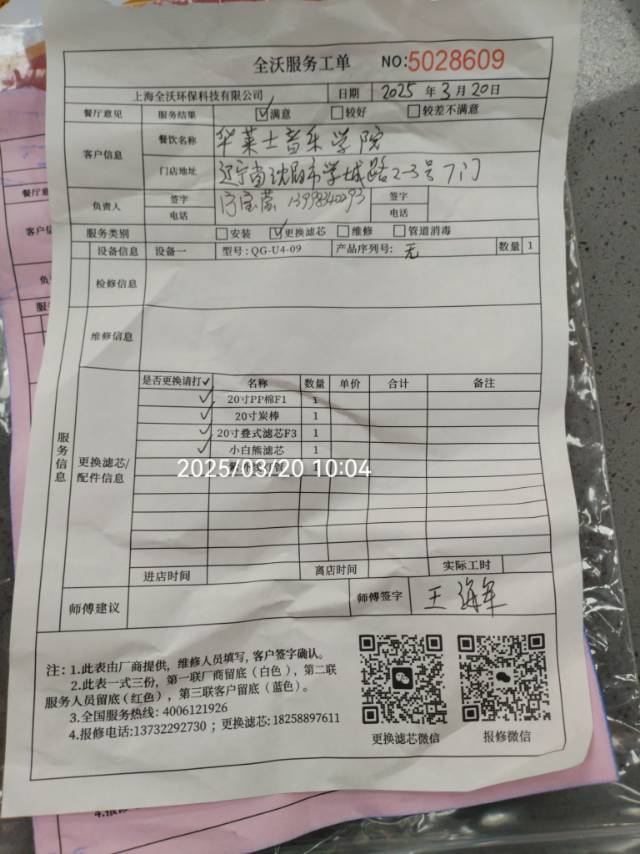 全沃服务工单 NO:5028609
上海全沃环保科技有限公司 日期 2025 年 3 月 20 日
餐厅意见 服务结果 ☑满意 □较好 □较差不满意
客户信息 餐饮名称 华莱士音乐学院
门店地址 辽宁省沈阳市学城路2-3号7门
负责人 签字 签字
电话 电话
服务类别 □安装 ☑更换滤芯 □维修 □管道消毒
设备信息 设备一 型号:QG-U4-09 产品序列号: 无 数量 1
检修信息
维修信息
服务信息
更换滤芯/配件信息
是否更换请打✓ 名称 数量 单价 合计 备注
✓ 20寸PP棉F1 1
✓ 20寸炭棒 1
✓ 20寸叠式滤芯F3 1
✓ 小白熊滤芯 1
1
2025/03/20 10:04
进店时间 离店时间 实际工时
师傅建议 师傅签字 王海军
注:1.此表由厂商提供,维修人员填写,客户签字确认。
2.此表一式三份,第一联厂商留底(白色),第二联
服务人员留底(红色),第三联客户留底(蓝色)。
3.全国服务热线: 4006121926
4.报修电话:13732292730 ; 更换滤芯:18258897611
更换滤芯微信 报修微信